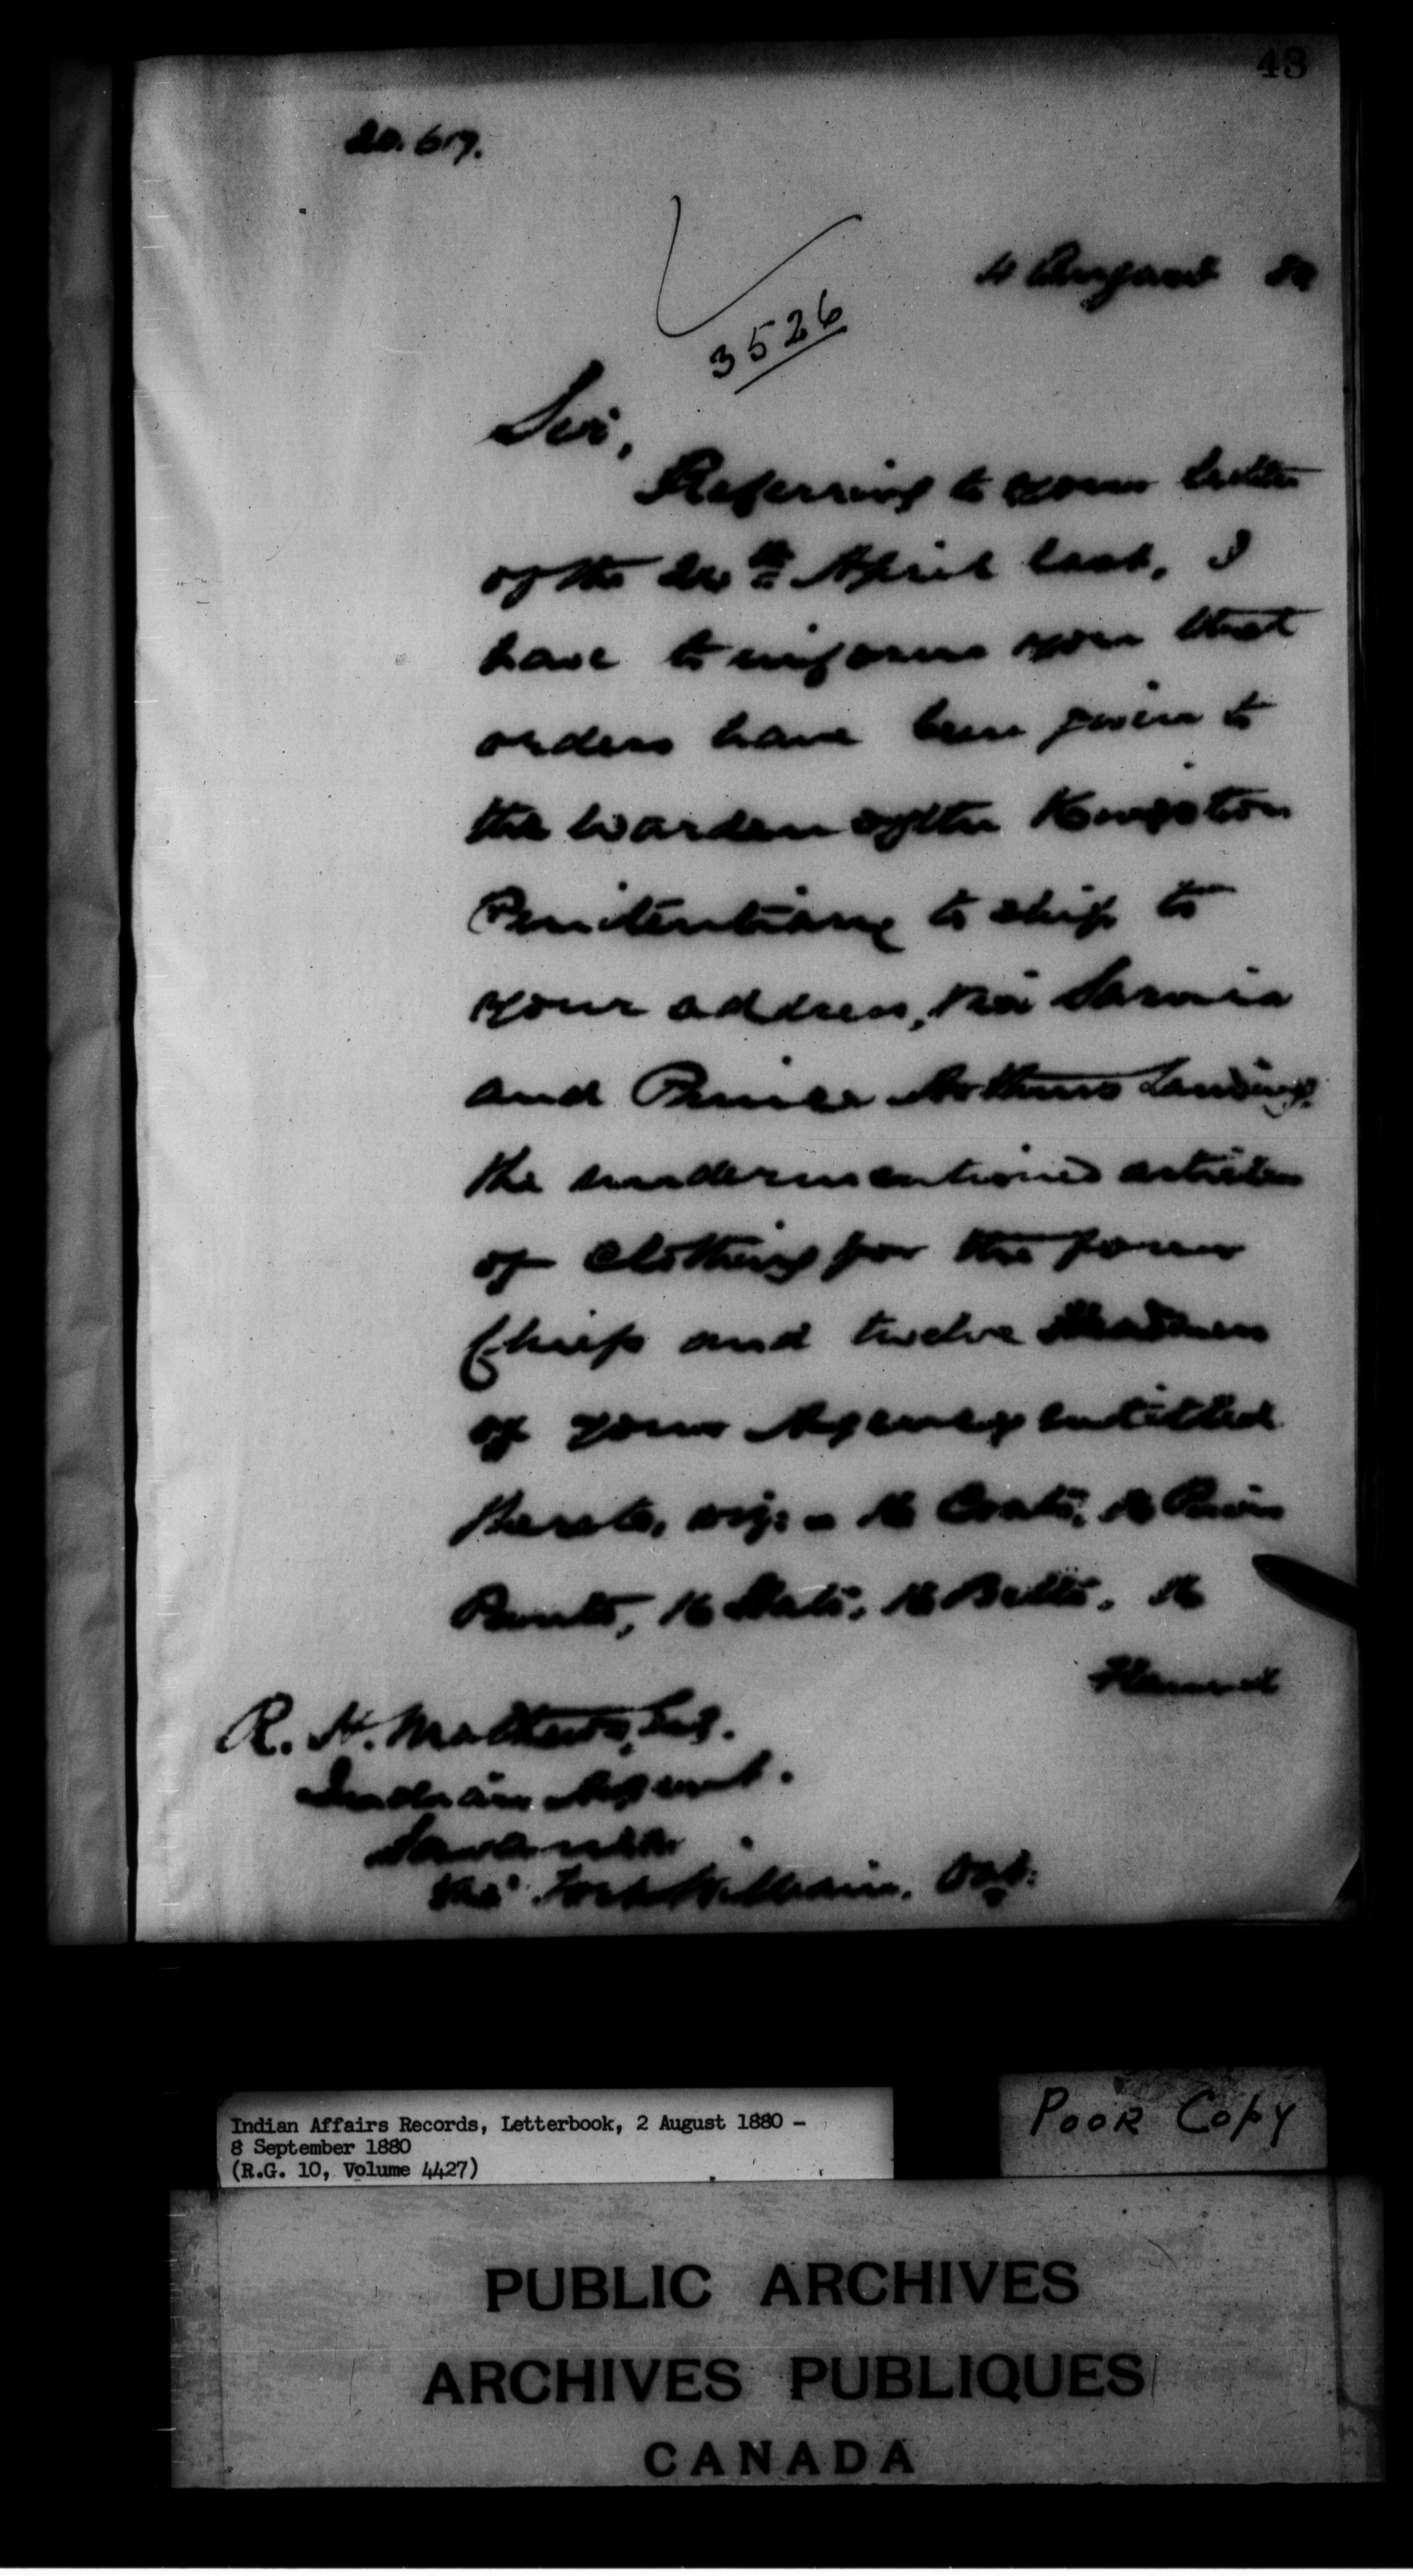 43
20.617.
3526
4 August 80
Sir,
Referring to your letter
of the 24th April last, I
have to inform you that
orders have been given to
the Warden of the Kingston
Penitentiary to ship to
your address, via Sarnia
and Prince Arthurs Landing,
the undermentioned articles
of clothing for the four
Chiefs and twelve Headmen
of your Agency entitled
thereto, viz: 16 Coats, 16 Pairs
Pants, 16 Hats, 16 Belts, 16
Flannel
R. H. Mathews, Esq.
Indian Agent.
Savanne
via Fort William, Ont:
Indian Affairs Records, Letterbook, 2 August 1880 -
8 September 1880
(R.G. 10, Volume 4427)
POOR Copy
PUBLIC ARCHIVES
ARCHIVES PUBLIQUES
CANADA